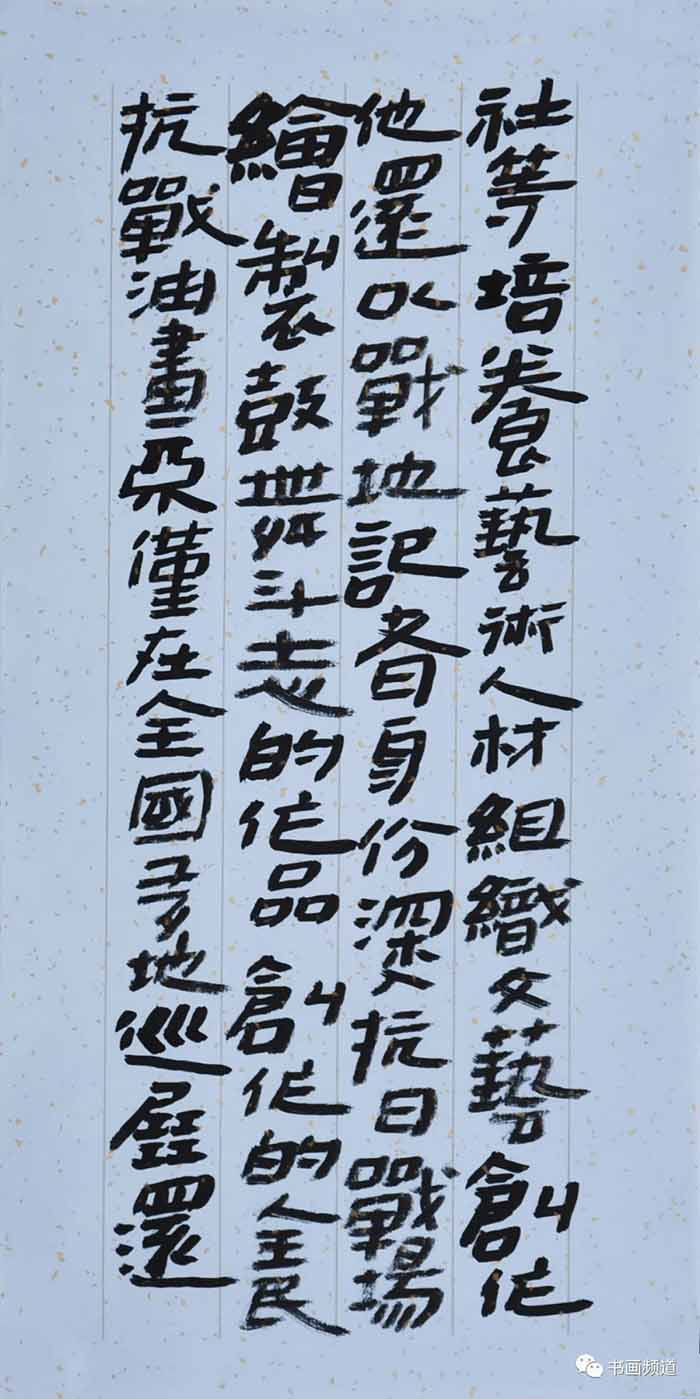 社等培養藝術人材組織文藝創作
他還以戰地記者身份深入抗日戰場
繪製鼓舞斗志的作品創作的全民
抗戰油畫不僅在全國多地巡展還
书画频道